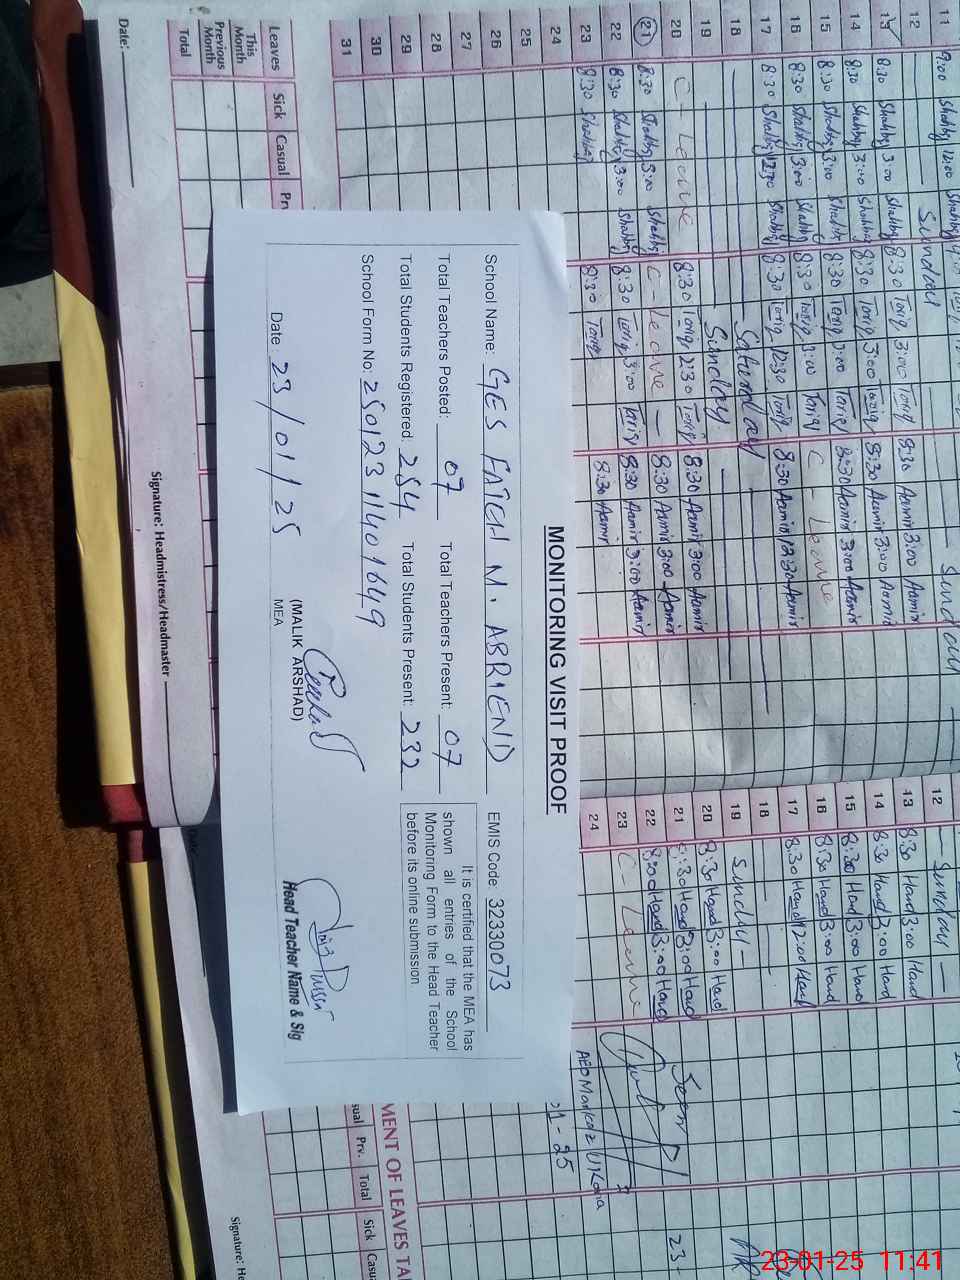 MONITORING VISIT PROOF
School Name: GES FATCH M. ABRIEND EMIS Code: 32330073
Total Teachers Posted: 07 Total Teachers Present: 07
Total Students Registered: 254 Total Students Present: 232
School Form No: 250123 1140 1649
It is certified that the MEA has
shown all entries of the School
Monitoring Form to the Head Teacher
before its online submission.
(MALIK ARSHAD)
MEA
Date : 23/01/25
Head Teacher Name & Sig
11 9:00 Shahbg 12:00 Shahbg
12 Sunday Sunday
13 8:30 Shahbg 3:00 Shahbg 8:30 Tariq 3:00 Tariq 8:30 Aamir 3:00 Aamir
14 8:30 Shahbg 3:00 Shahbg 8:30 Tariq 3:00 Tariq 8:30 Aamir 3:00 Aamir
15 8:30 Shahbg 3:00 Shahbg 8:30 Tariq 3:00 Tariq 8:30 Aamir 3:00 Aamir
16 8:30 Shahbg 3:00 Shahbg 8:30 Tariq 3:00 Tariq C - Leave
17 8:30 Shahbg 12:30 Shahbg 8:30 Tariq 12:30 Tariq 8:30 Aamir 12:30 Aamir
18 Saturday
19 Sunday
20 C - Leave 8:30 Tariq 2:30 Tariq 8:30 Aamir 3:00 Aamir
21 8:30 Shahbg 3:00 Shahbg C - Leave 8:30 Aamir 3:00 Aamir
22 8:30 Shahbg 3:00 Shahbg 8:30 Tariq 3:00 Tariq 8:30 Aamir 3:00 Aamir
23 8:30 Shahbg 8:30 Tariq 8:30 Aamir
24
25
26
27
28
29
30
31
Leaves Sick Casual
This Month
Previous Month
Total
Date:
Signature: Headmistress/Headmaster
12 Sunday
13 8:30 Hand 3:00 Hand
14 8:30 Hand 3:00 Hand
15 8:30 Hand 3:00 Hand
16 8:30 Hand 3:00 Hand
17 8:30 Hand 12:00 Hand
18
19 Sunday
20 8:30 Hand 3:00 Hand
21 8:30 Hand 3:00 Hand
22 8:30 Hand 3:00 Hand
23 C - Leave
24
Seen
AEO Markaz
1-25
23
MENT OF LEAVES TA
Prv. Total Sick
Signature:
23-01-25 11:41